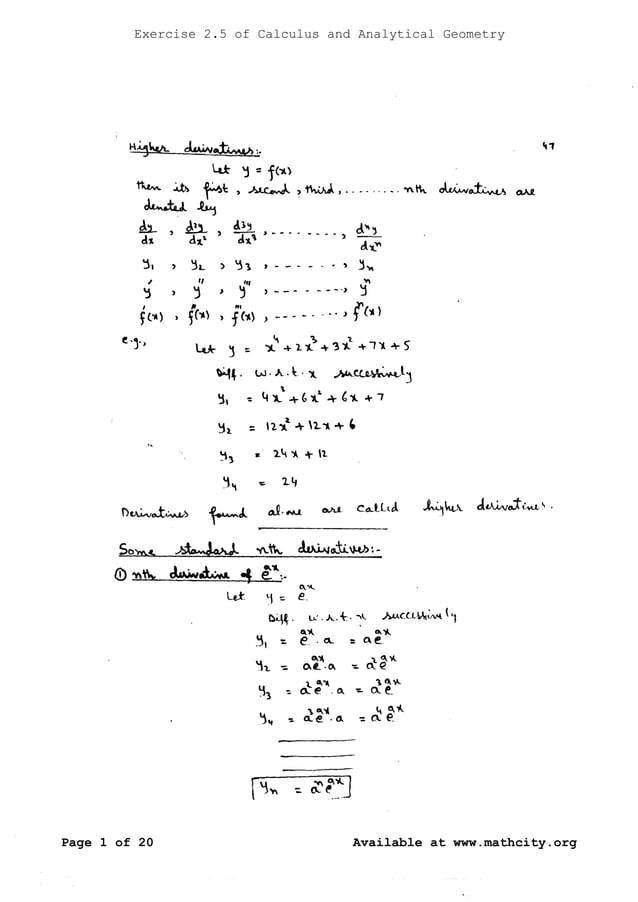 Exercise 2.5 of Calculus and Analytical Geometry
47
Higher derivatives:-
Let y = f(x)
then its first, second, third, ......... nth derivatives are
denoted by
dy/dx , d²y/dx² , d³y/dx³ , - - - - - - - - , dⁿy/dxⁿ
y₁ , y₂ , y₃ , - - - - - - , yₙ
y′ , y″ , y‴ , - - - - - - - - , yⁿ
f′(x) , f″(x) , f‴(x) , - - - - - - - - , fⁿ(x)
e.g., Let y = x⁴ + 2x³ + 3x² + 7x + 5
Diff. w.r.t. x successively
y₁ = 4x³ + 6x² + 6x + 7
y₂ = 12x² + 12x + 6
y₃ = 24x + 12
y₄ = 24
Derivatives found above are called higher derivatives.
Some standard nth derivatives:-
① nth derivative of eᵃˣ:-
Let y = eᵃˣ
Diff. w.r.t. x successively
y₁ = eᵃˣ . a = aeᵃˣ
y₂ = aeᵃˣ.a = a²eᵃˣ
y₃ = a²eᵃˣ.a = a³eᵃˣ
y₄ = a³eᵃˣ.a = a⁴eᵃˣ
yₙ = aⁿeᵃˣ
Page 1 of 20 Available at www.mathcity.org